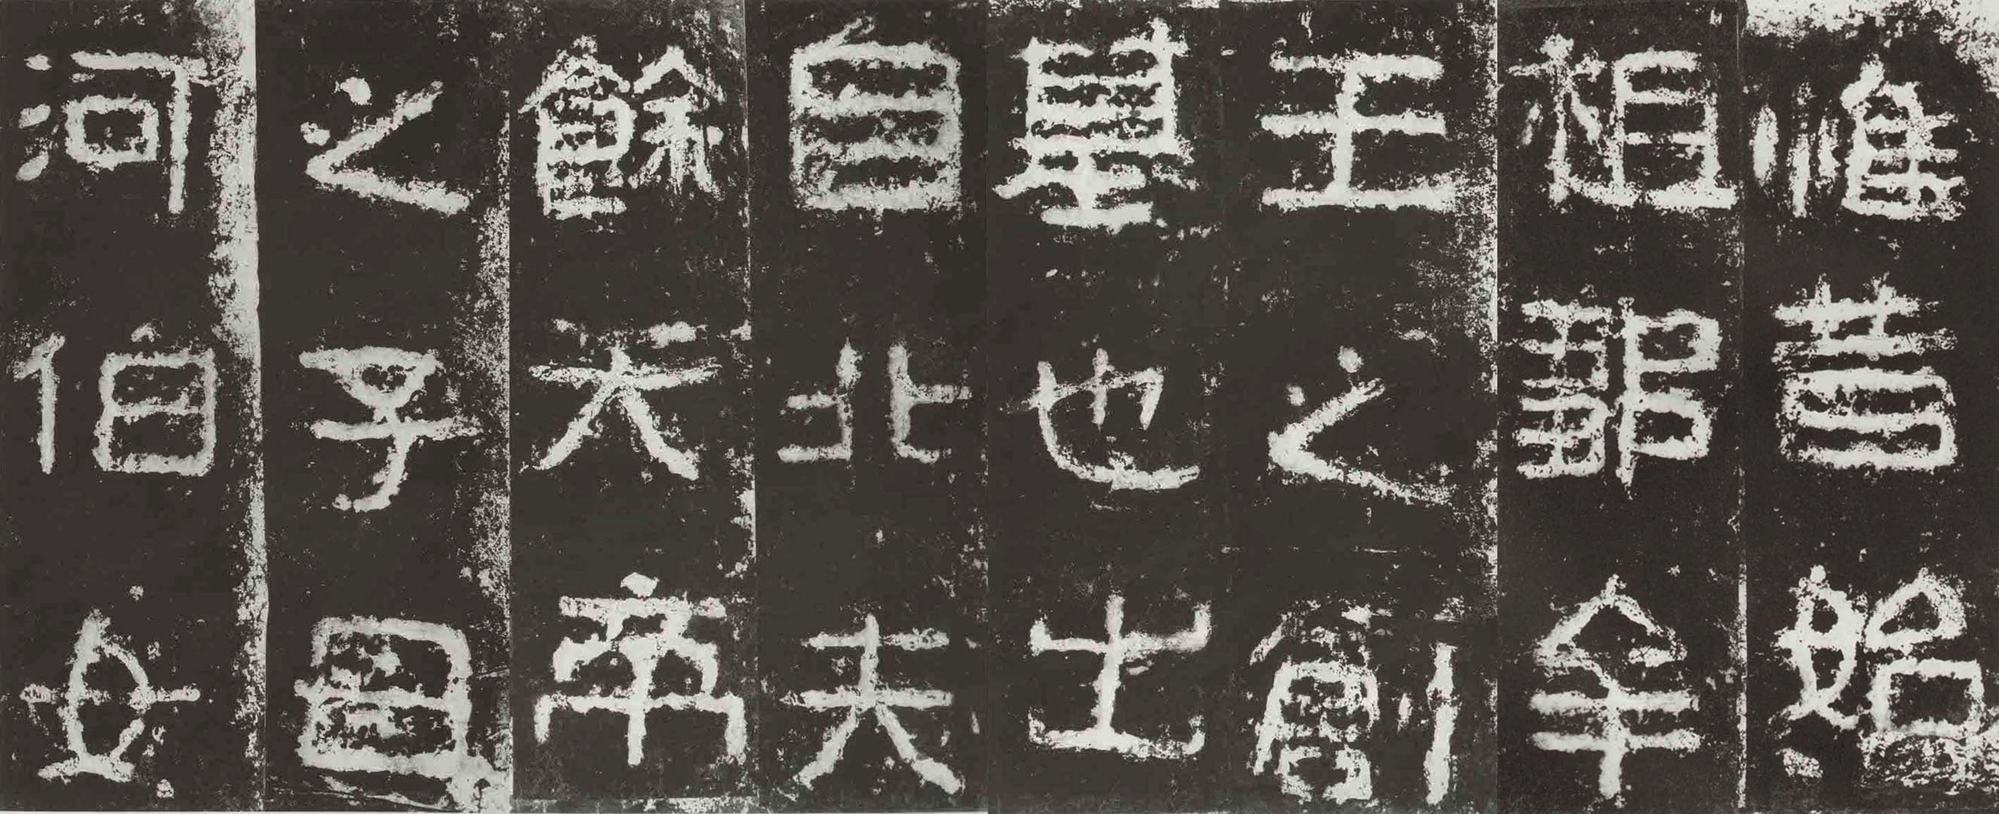 惟昔始
祖鄒牟
王之創
基也出
自北夫
餘天帝
之子母
河伯女